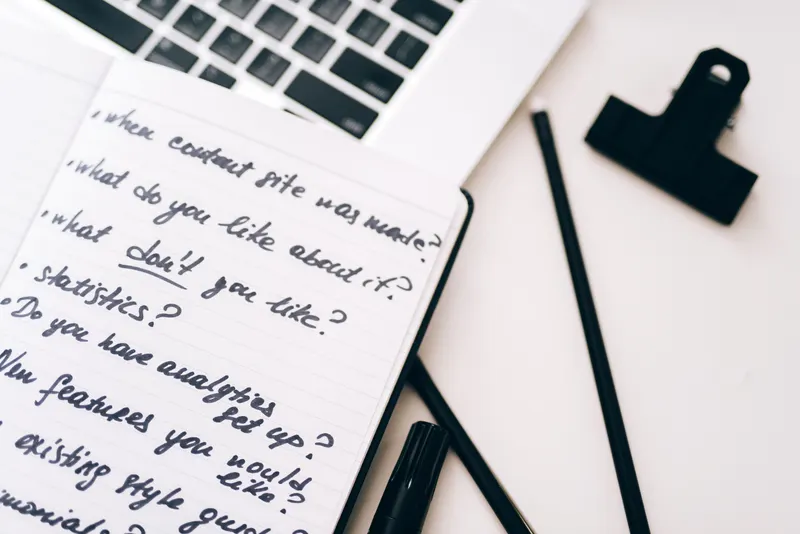 • when content site was made?
• what do you like about it?
• what don't you like?
• statistics?
• Do you have analytics
set up?
New features you would
like?
existing style guide